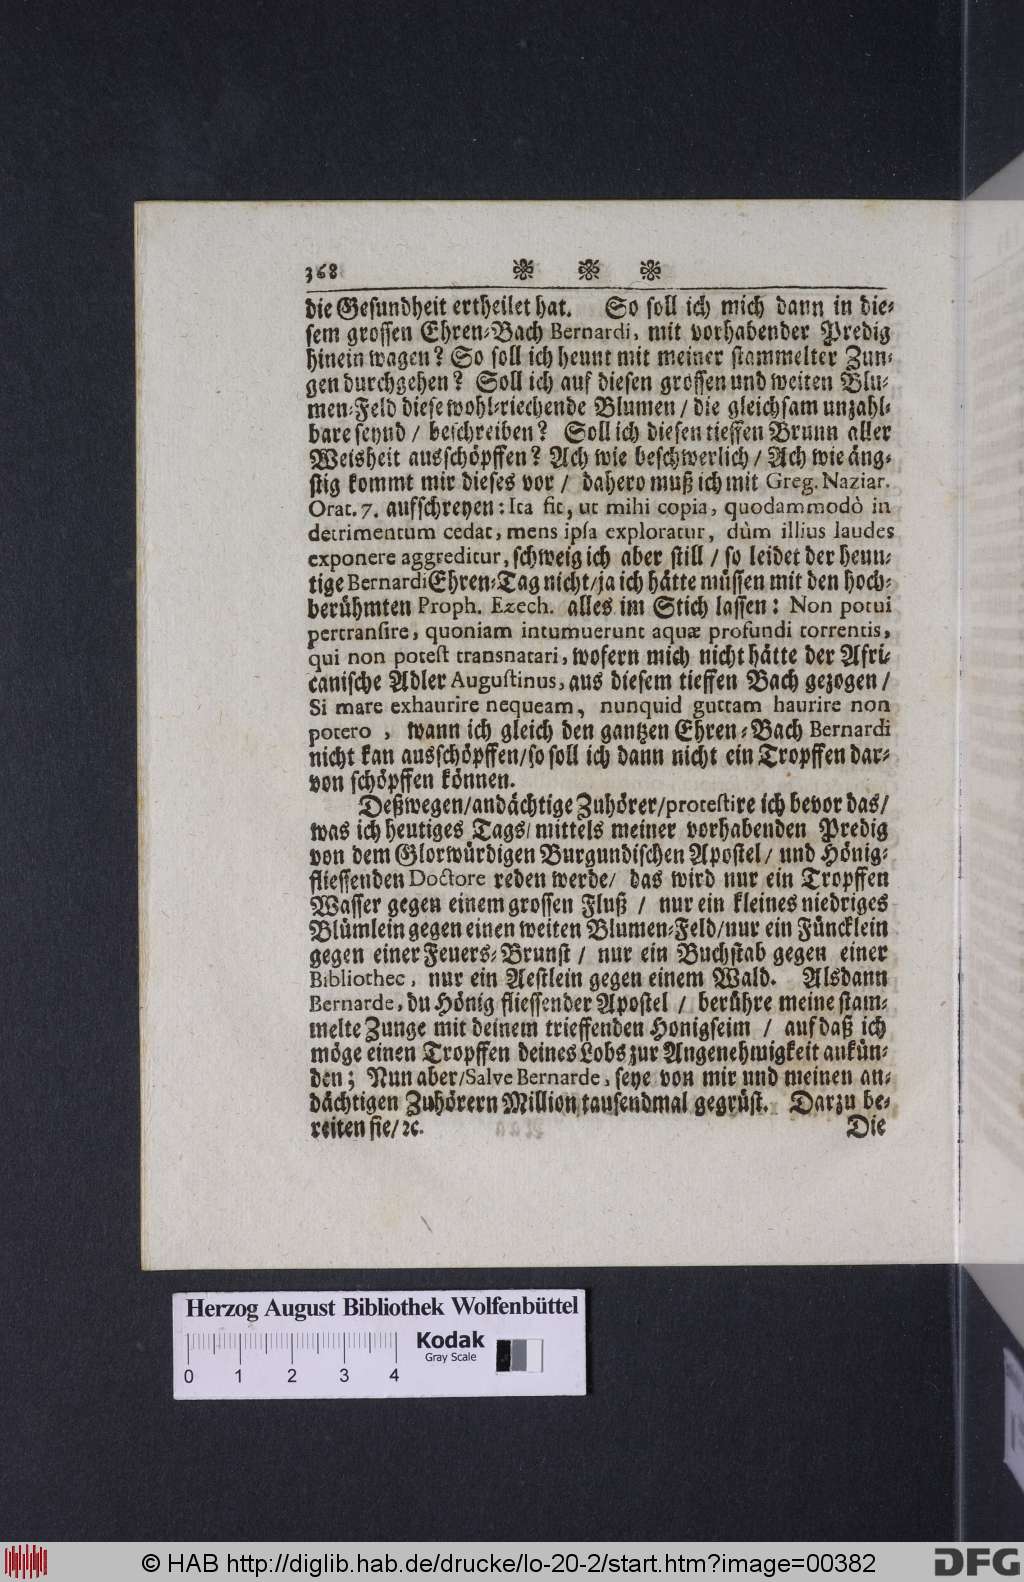 368
die Gesundheit ertheilet hat. So soll ich mich dann in die-
sem grossen Ehren-Bach Bernardi, mit vorhabender Predig
hinein wagen? So soll ich heunt mit meiner stammelter Zun-
gen durchgehen? Soll ich auf diesen grossen und weiten Blu-
men-Feld diese wohl-riechende Blumen / die gleichsam unzahl-
bare seynd / beschreiben? Soll ich diesen tieffen Brunn aller
Weisheit ausschöpffen? Ach wie beschwerlich / Ach wie äng-
stig kommt mir dieses vor / dahero muß ich mit Greg. Naziar.
Orat. 7. aufschreyen: Ita fit, ut mihi copia, quodammodò in
detrimentum cedat, mens ipsa exploratur, dùm illius laudes
exponere aggreditur, schweig ich aber still / so leidet der heun-
tige Bernardi Ehren-Tag nicht / ja ich hätte müssen mit den hoch-
berühmten Proph. Ezech. alles im Stich lassen: Non potui
pertransire, quoniam intumuerunt aquæ profundi torrentis,
qui non potest transnatari, wofern mich nicht hätte der Afri-
canische Adler Augustinus, aus diesem tieffen Bach gezogen /
Si mare exhaurire nequeam, nunquid guttam haurire non
potero, wann ich gleich den gantzen Ehren-Bach Bernardi
nicht kan ausschöpffen / so soll ich dann nicht ein Tropffen dar-
von schöpffen können.
Deßwegen / andächtige Zuhörer / protestire ich bevor das /
was ich heutiges Tags / mittels meiner vorhabenden Predig
von dem Glorwürdigen Burgundischen Apostel / und Hönig-
fliessenden Doctore reden werde / das wird nur ein Tropffen
Wasser gegen einem grossen Fluß / nur ein kleines niedriges
Blümlein gegen einen weiten Blumen-Feld / nur ein Füncklein
gegen einer Feuers-Brunst / nur ein Buchstab gegen einer
Bibliothec, nur ein Aestlein gegen einem Wald. Alsdann
Bernarde, du Hönig fliessender Apostel / berühre meine stam-
melte Zunge mit deinem trieffenden Honigseim / auf daß ich
möge einen Tropffen deines Lobs zur Angenehmigkeit ankün-
den; Nun aber / Salve Bernarde, seye von mir und meinen an-
dächtigen Zuhörern Million tausendmal gegrüst. Darzu be-
reiten sie / ꝛc.
Die
Herzog August Bibliothek Wolfenbüttel
Kodak
Gray Scale
0 1 2 3 4
© HAB http://diglib.hab.de/drucke/lo-20-2/start.htm?image=00382
DFG